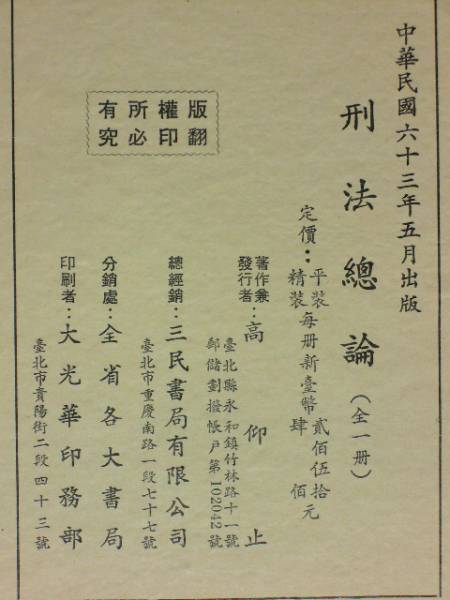 中華民國六十三年五月出版
刑法總論(全一冊)
定價:平裝 每冊新臺幣 貳佰伍拾元
精裝 肆佰
版權所有
翻印必究
著作兼發行者:高仰止
臺北縣永和鎮竹林路十一號
郵儲劃撥帳戶第102042號
總經銷:三民書局有限公司
臺北市重慶南路一段七十七號
分銷處:全省各大書局
印刷者:大光華印務部
臺北市貴陽街二段四十三號